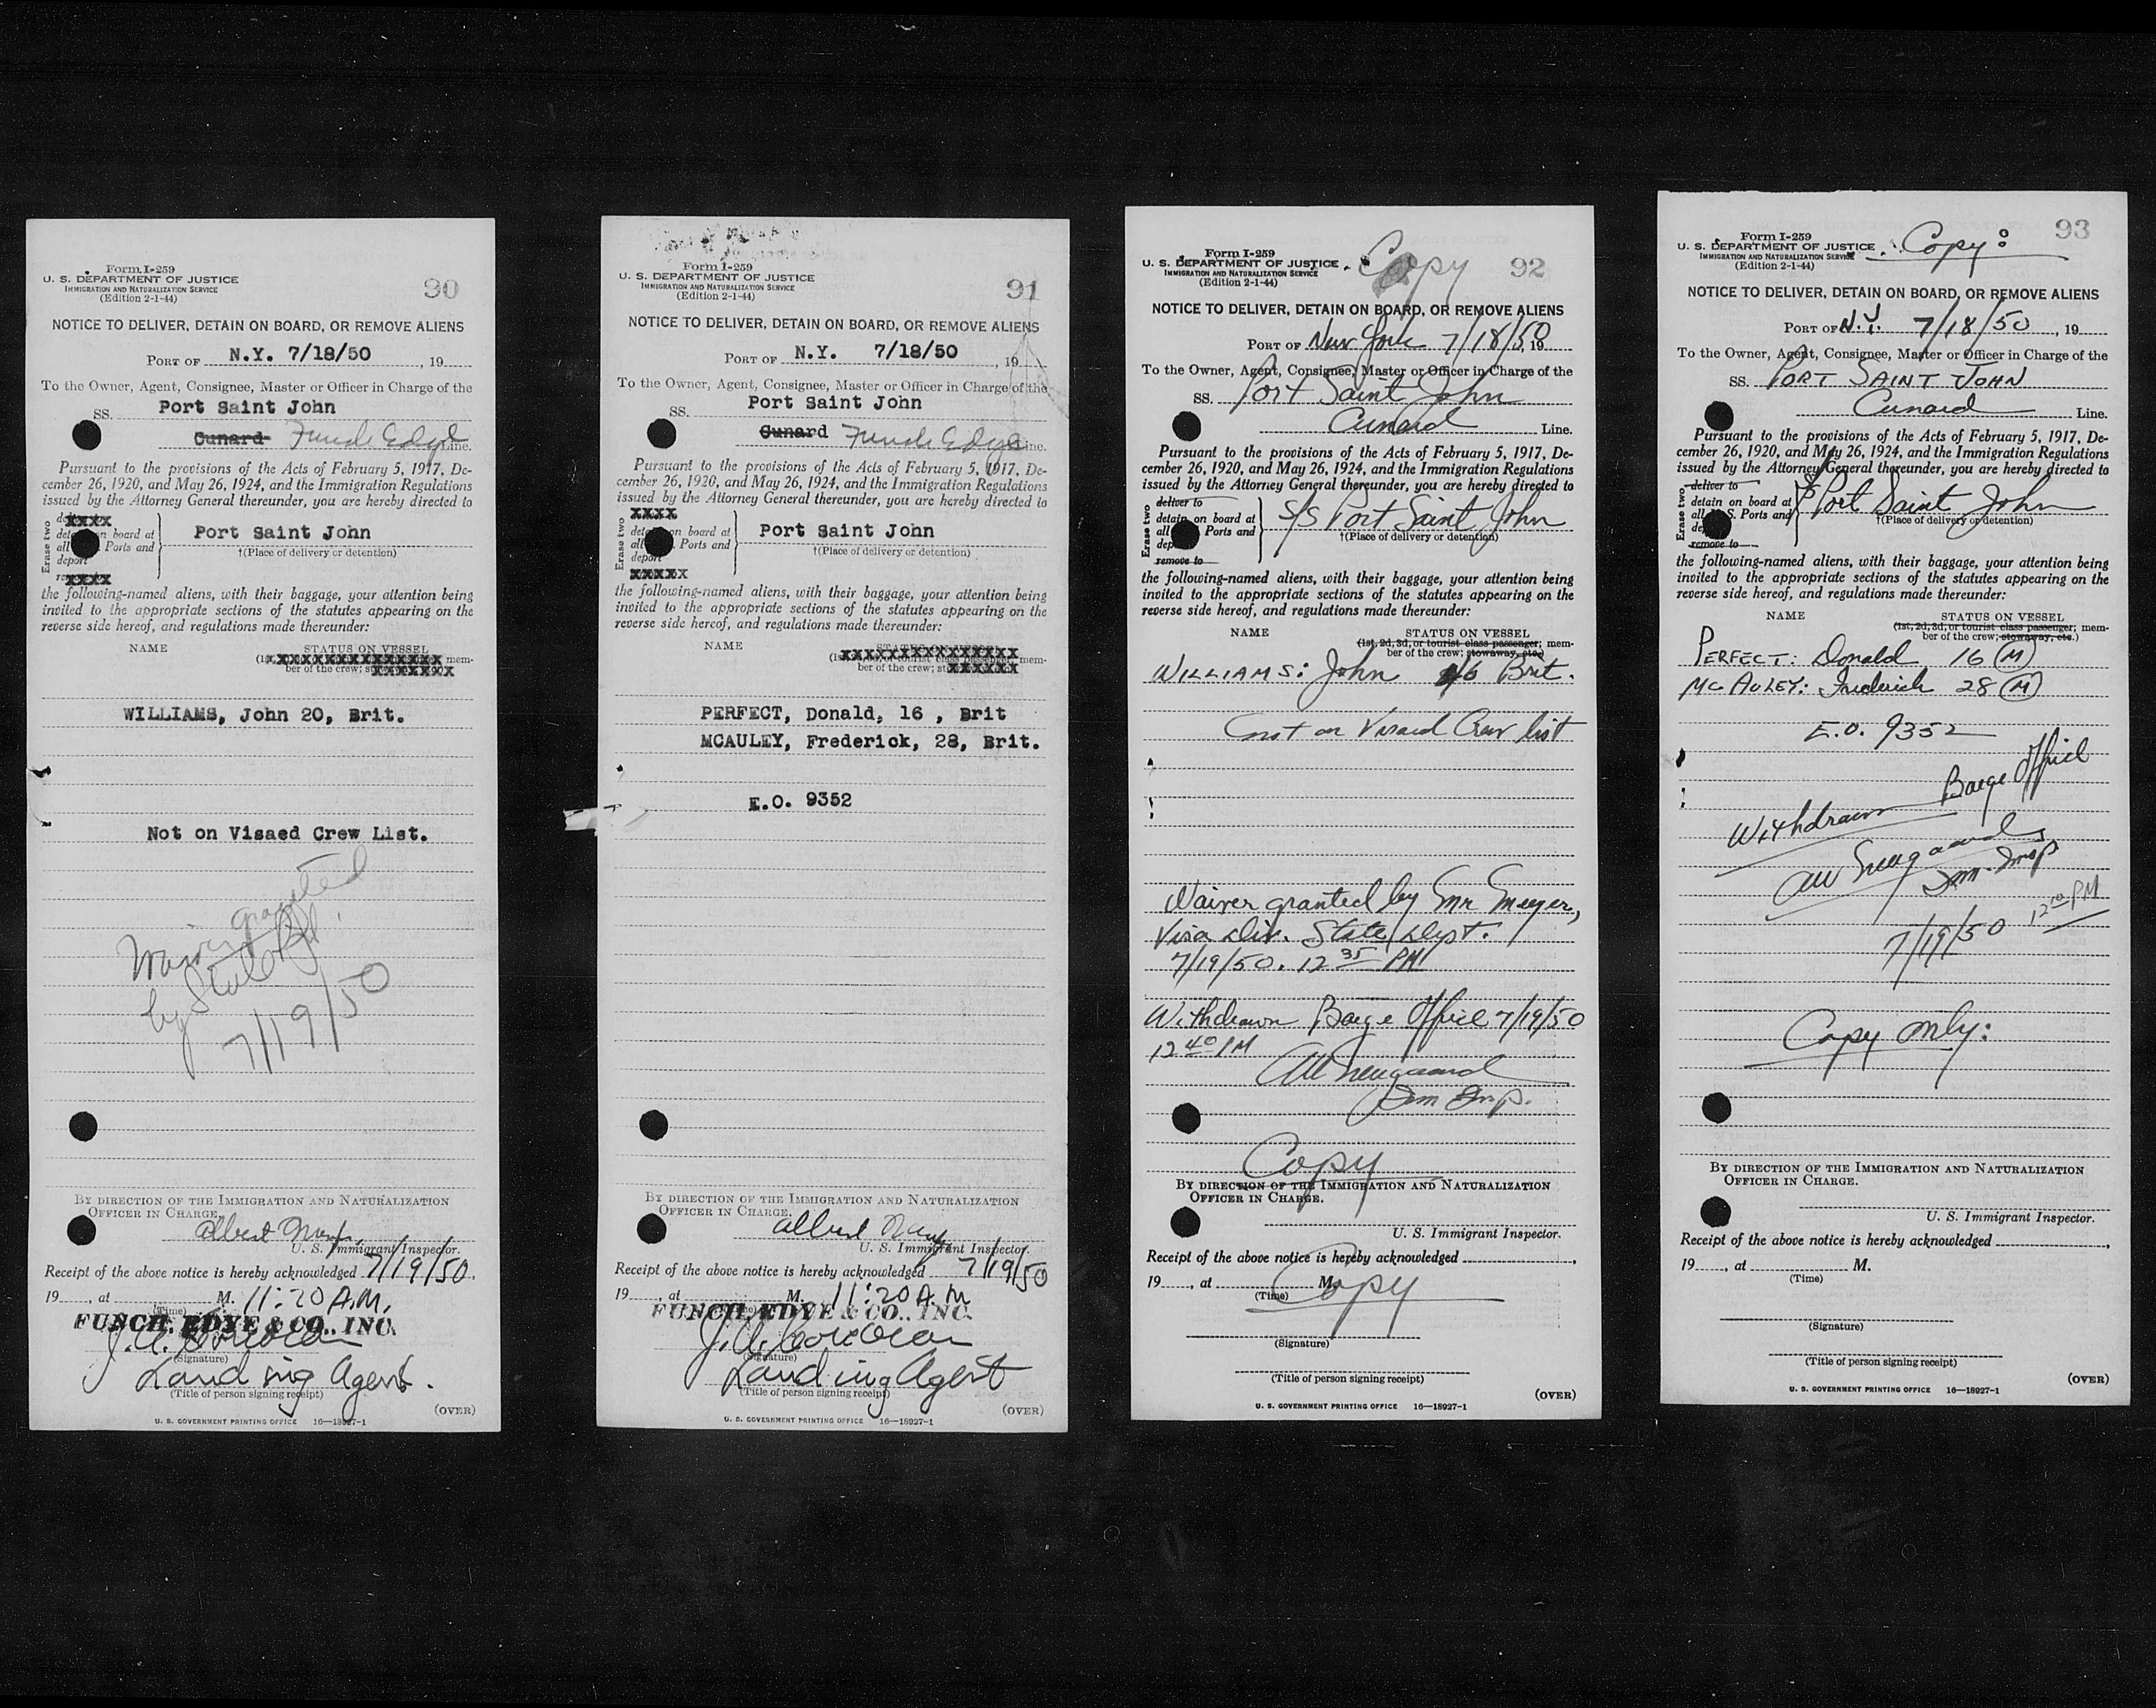 Form I-259
U. S. DEPARTMENT OF JUSTICE
IMMIGRATION AND NATURALIZATION SERVICE
(Edition 2-1-44)
90
NOTICE TO DELIVER, DETAIN ON BOARD, OR REMOVE ALIENS
PORT OF N.Y. 7/18/50, 19
To the Owner, Agent, Consignee, Master or Officer in Charge of the
SS. Port Saint John
Cunard Funch Edye Line.
Pursuant to the provisions of the Acts of February 5, 1917, De-
cember 26, 1920, and May 26, 1924, and the Immigration Regulations
issued by the Attorney General thereunder, you are hereby directed to
Erase two
xxxx
on board at
all Ports and
deport
xxxx
Port Saint John
†(Place of delivery or detention)
the following-named aliens, with their baggage, your attention being
invited to the appropriate sections of the statutes appearing on the
reverse side hereof, and regulations made thereunder:
NAME STATUS ON VESSEL
mem-
ber of the crew;
WILLIAMS, John 20, Brit.
Not on Visaed Crew List.
Waiver granted
by State
7/19/50
BY DIRECTION OF THE IMMIGRATION AND NATURALIZATION
OFFICER IN CHARGE.
Albert
U. S. Immigrant Inspector.
Receipt of the above notice is hereby acknowledged 7/19/50.
19, at M. 11:20 A.M.
(Time)
FUNCH, EDYE & CO., INC.
J. A. Corcoran
(Signature)
Landing Agent.
(Title of person signing receipt)
(OVER)
U. S. GOVERNMENT PRINTING OFFICE 16—18927-1
Form I-259
U. S. DEPARTMENT OF JUSTICE
IMMIGRATION AND NATURALIZATION SERVICE
(Edition 2-1-44)
91
NOTICE TO DELIVER, DETAIN ON BOARD, OR REMOVE ALIENS
PORT OF N.Y. 7/18/50, 19
To the Owner, Agent, Consignee, Master or Officer in Charge of the
SS. Port Saint John
Cunard Funch Edye Line.
Pursuant to the provisions of the Acts of February 5, 1917, De-
cember 26, 1920, and May 26, 1924, and the Immigration Regulations
issued by the Attorney General thereunder, you are hereby directed to
Erase two
xxxx
on board at
all Ports and
deport
xxxxx
Port Saint John
†(Place of delivery or detention)
the following-named aliens, with their baggage, your attention being
invited to the appropriate sections of the statutes appearing on the
reverse side hereof, and regulations made thereunder:
NAME STATUS ON VESSEL
mem-
ber of the crew;
PERFECT, Donald, 16 , Brit
MCAULEY, Frederick, 28, Brit.
E.O. 9352
BY DIRECTION OF THE IMMIGRATION AND NATURALIZATION
OFFICER IN CHARGE.
Albert
U. S. Immigrant Inspector.
Receipt of the above notice is hereby acknowledged 7/19/50
19, at M. 11:20 A.M
FUNCH, EDYE & CO., INC.
J. A. Corcoran
(Signature)
Landing Agent
(Title of person signing receipt)
(OVER)
U. S. GOVERNMENT PRINTING OFFICE 16—18927-1
Form I-259
U. S. DEPARTMENT OF JUSTICE
IMMIGRATION AND NATURALIZATION SERVICE
(Edition 2-1-44)
Copy 92
NOTICE TO DELIVER, DETAIN ON BOARD, OR REMOVE ALIENS
PORT OF New York 7/18/50, 19
To the Owner, Agent, Consignee, Master or Officer in Charge of the
SS. Port Saint John
Cunard Line.
Pursuant to the provisions of the Acts of February 5, 1917, De-
cember 26, 1920, and May 26, 1924, and the Immigration Regulations
issued by the Attorney General thereunder, you are hereby directed to
Erase two
deliver to
detain on board at
all Ports and
remove to
S/S Port Saint John
†(Place of delivery or detention)
the following-named aliens, with their baggage, your attention being
invited to the appropriate sections of the statutes appearing on the
reverse side hereof, and regulations made thereunder:
NAME STATUS ON VESSEL
(1st, 2d, 3d, or tourist class passenger; mem-
ber of the crew; stowaway, etc.)
WILLIAMS: John Brit.
not on Visaed Crew list
Waiver granted by Mr Meyer,
Visa Div. State Dept.
7/19/50. 12 35 PM
Withdrawn Barge Office 7/19/50
12 40 PM
Imm Insp.
Copy
BY DIRECTION OF THE IMMIGRATION AND NATURALIZATION
OFFICER IN CHARGE.
U. S. Immigrant Inspector.
Receipt of the above notice is hereby acknowledged,
19, at M.
(Time)
Copy
(Signature)
(Title of person signing receipt)
(OVER)
U. S. GOVERNMENT PRINTING OFFICE 16—18927-1
Form I-259
U. S. DEPARTMENT OF JUSTICE
IMMIGRATION AND NATURALIZATION SERVICE
(Edition 2-1-44)
Copy: 93
NOTICE TO DELIVER, DETAIN ON BOARD, OR REMOVE ALIENS
PORT OF N.Y. 7/18/50, 19
To the Owner, Agent, Consignee, Master or Officer in Charge of the
SS. PORT SAINT JOHN
Cunard Line.
Pursuant to the provisions of the Acts of February 5, 1917, De-
cember 26, 1920, and May 26, 1924, and the Immigration Regulations
issued by the Attorney General thereunder, you are hereby directed to
Erase two
deliver to
detain on board at
all S. Ports and
remove to
Port Saint John
†(Place of delivery or detention)
the following-named aliens, with their baggage, your attention being
invited to the appropriate sections of the statutes appearing on the
reverse side hereof, and regulations made thereunder:
NAME STATUS ON VESSEL
(1st, 2d, 3d, or tourist class passenger; mem-
ber of the crew; stowaway, etc.)
PERFECT: Donald 16 (M)
MCAULEY: Frederick 28 (M)
E.O. 9352
Withdrawn Barge Office
Imm. Insp
7/19/50 12 PM
Copy only:
BY DIRECTION OF THE IMMIGRATION AND NATURALIZATION
OFFICER IN CHARGE.
U. S. Immigrant Inspector.
Receipt of the above notice is hereby acknowledged,
19, at M.
(Time)
(Signature)
(Title of person signing receipt)
(OVER)
U. S. GOVERNMENT PRINTING OFFICE 16—18927-1